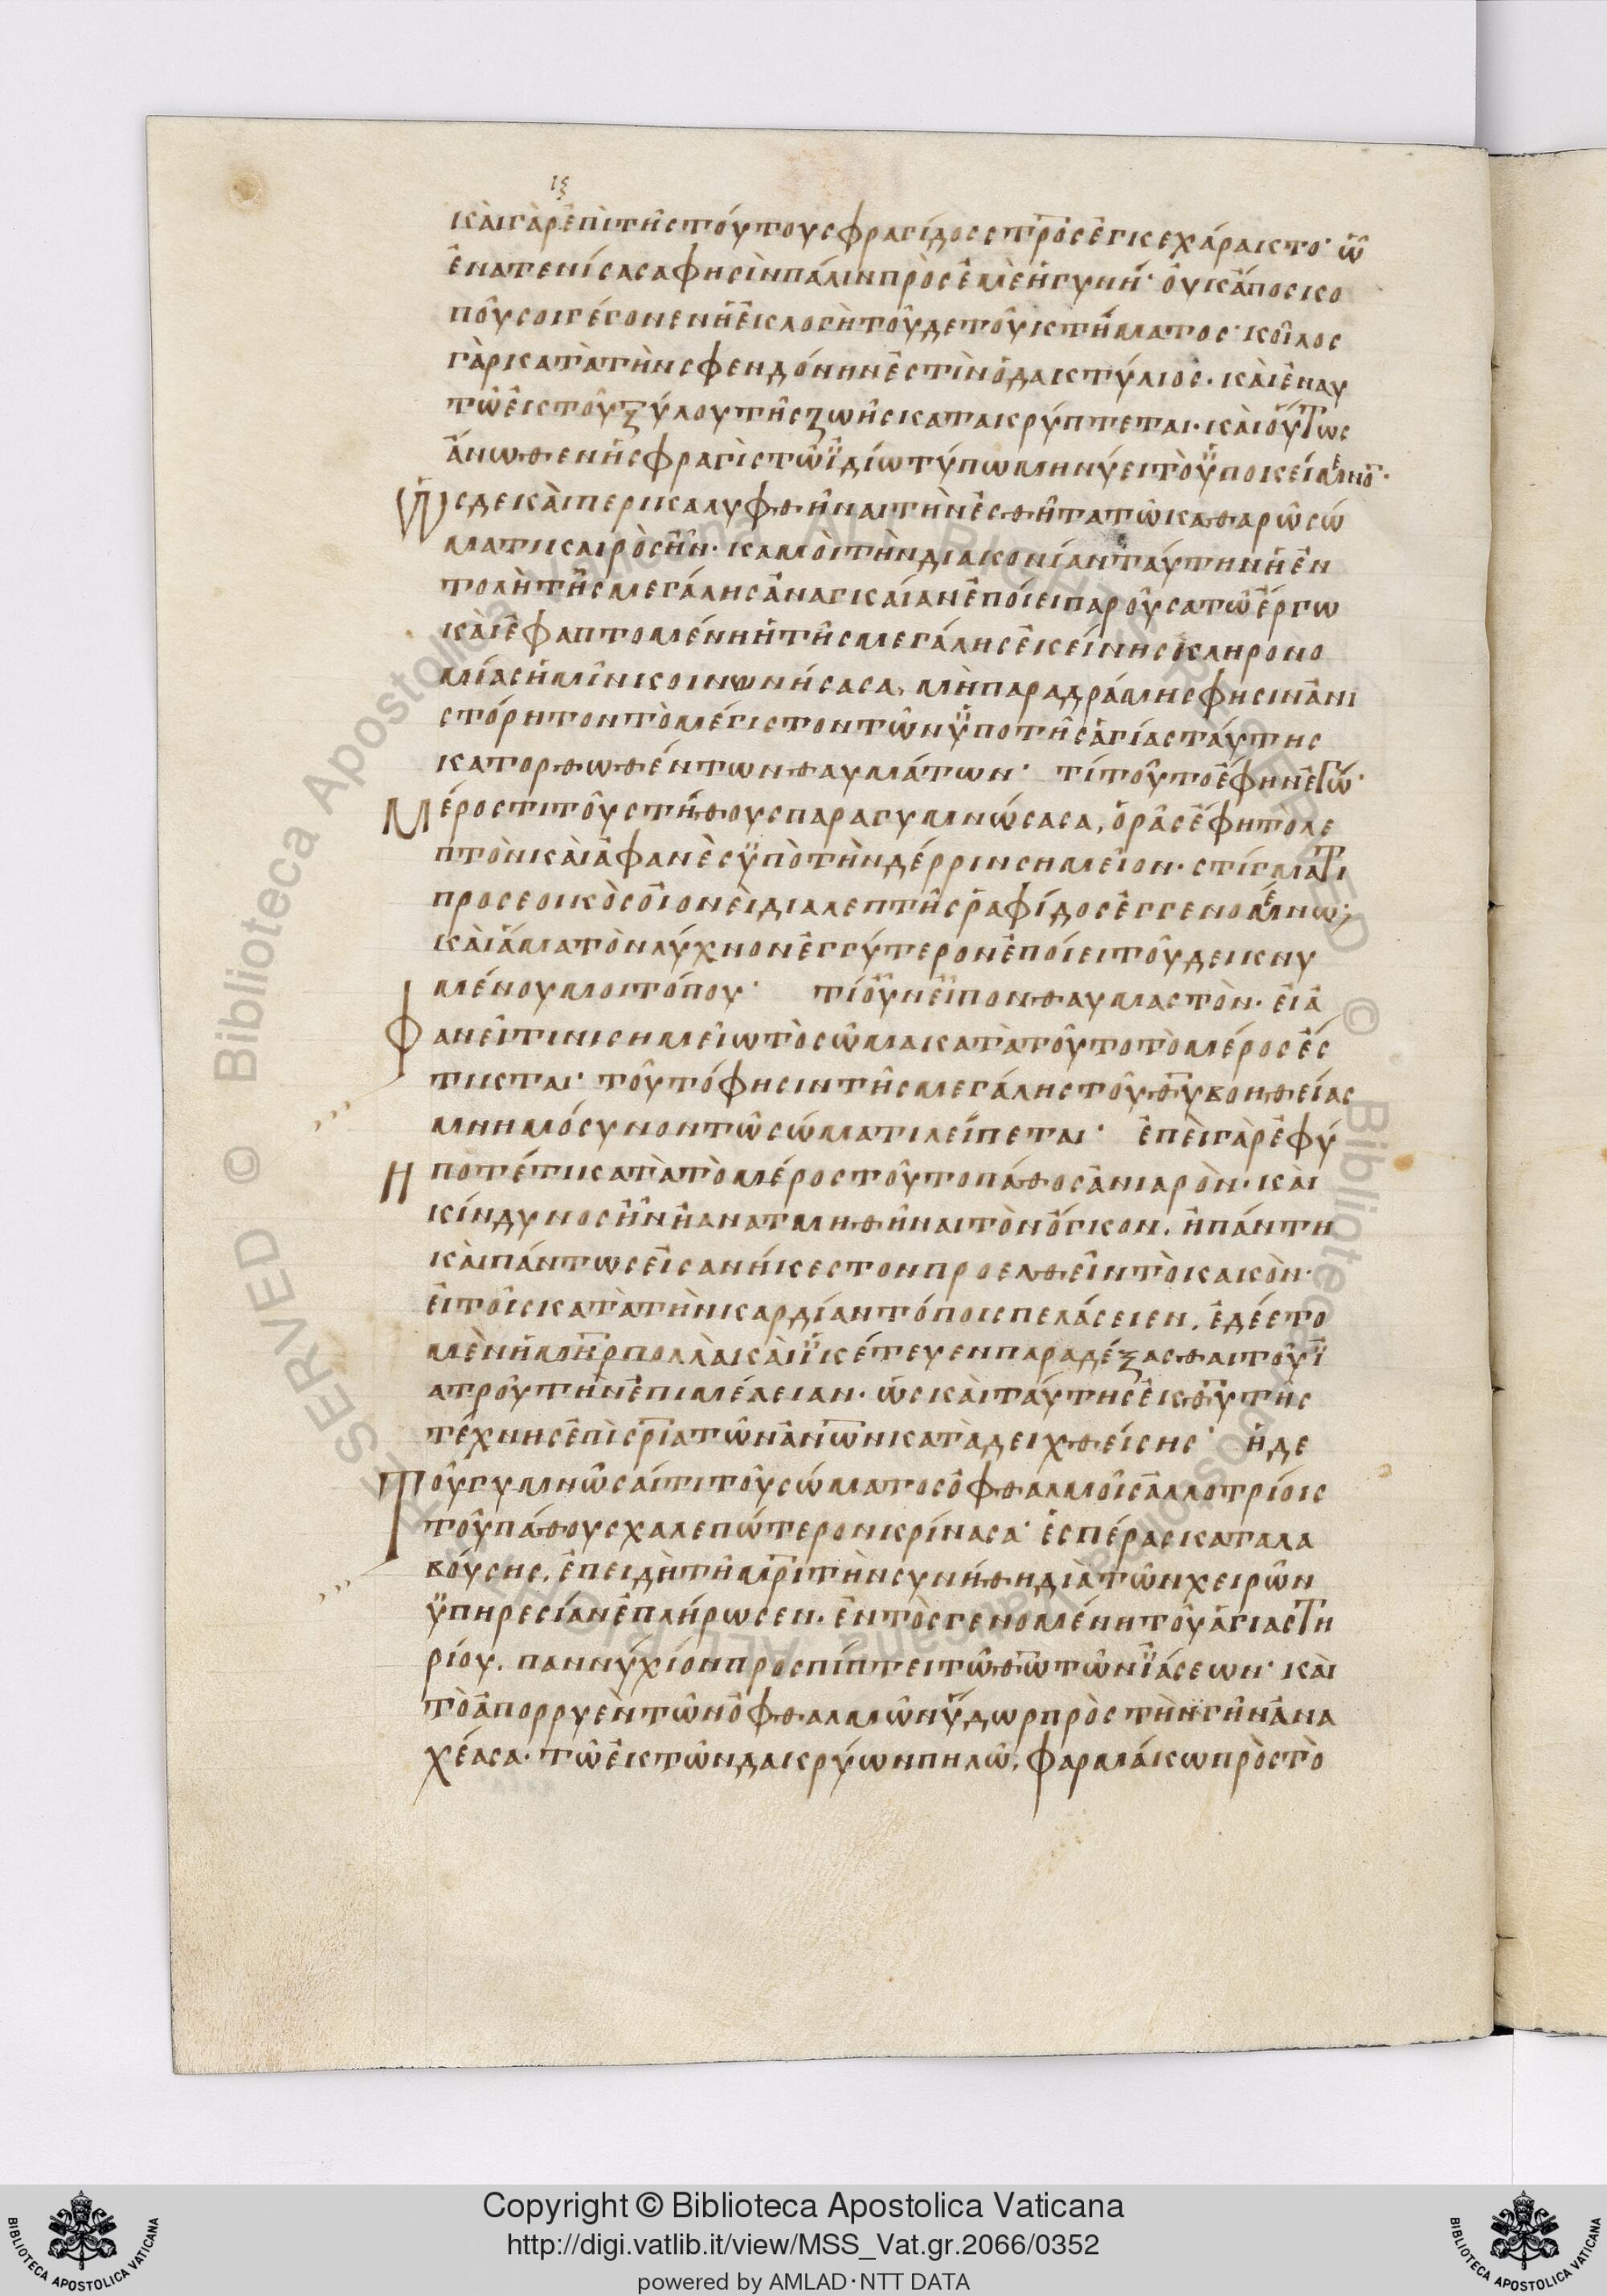 ις
καὶ γὰρ ἐπὶ τῆς τούτου σφραγίδος στρὸς ἐγκεχάρακτο· ὧ
ἐνατενίσασα φησὶν πάλιν πρὸς ἐμὲ ἡ γυνή· οὐκ ἄπο σκο
ποῦ σοι γέγονεν ἡ ἐκλογὴ τοῦδε τοῦ κτήματος· κοῖλος
γὰρ κατὰ τὴν σφενδόνην ἐστὶν ὁ δακτύλιος. καὶ ἐν αυ
τῶ ἐκ τοῦ ξύλου τῆς ζωῆς κατακρύπτεται. καὶ οὕτως
ἄνωθεν ἡ σφραγὶς τῶ ϊδίω τύπω μηνύει τὸ ϋποκείμενο̅·
Ὡς δε καὶ περικαλυφθῆναι τὴν ἐσθῆτα τῶ καθαρῶ σώ
ματι καιρὸς ἦν· κἀμὸι τὴν διακονίαν ταύτην ἡ ἐν
τολὴ τῆς μεγάλης ἀναγκαίαν ἐποίει παροῦσα τῶ ἔργω
καὶ ἐφαπτομένη ἡ τῆς μεγάλης ἐκείνης κληρονο
μίας ἡμῖν κοινωνήσασα, μὴ παραδράμης φησιν ἀνι
στόρητον τὸ μέγιστον τῶν ϋπο τῆς ἁγίας ταύτης
κατορθωθέντων θαυμάτων· τί τοῦτο ἔφην ἐγώ·
Μέρος τι τοῦ στήθους παραγυμνώσασα, ὁρᾶς ἔφη τὸ λε
πτὸν καὶ ἀφανὲς ϋπὸ τὴν δέρριν σημεῖον· στίγματι
προσεοικὸς οἷον εὶ διὰ λεπτῆς ῥαφίδος ἐγγενομένω;
καὶ ἅμα τὸν λύχνον ἐγγύτερον ἐποίει τοῦ δεικνυ
μένου μοι τόπου· τί οὖν εἶπον θαυμαστὸν· εἰ ἀ
Φανεῖ τινι σημείω τὸ σῶμα κατὰ τοῦτο τὸ μέρος ἔσ
τικται· τοῦτό φησιν τῆς μεγάλης τοῦ θ̅υ βοηθείας
μνημόσυνον τῶ σώματι λείπεται· ἐπεὶ γὰρ ἐφύ
Η ποτέ τι κατὰ τὸ μέρος τοῦτο πάθος ἀνιαρὸν. καὶ
κίνδυνος ἦν ἢ ἀνατμηθῆναι τὸν ὄγκον. ἢ πάντη
καὶ πάντως εἰς ανήκεστον προελθεῖν τὸ κακὸν·
εἰ τοῖς κατὰ τὴν καρδίαν τόποις πελάσειεν. ἐδέετο
μὲν ἡ μ̅η̅ρ πολλὰ καὶ ϊκέτευεν παραδέξασθαι τοῦ ϊ
ατροῦ τὴν ἐπιμέλειαν. ὡς καὶ ταύτης ἐκ θ̅υ τῆς
τέχνης ἐπὶ σ̅ρ̅ια τῶν ἀν̅ων καταδειχθείσης· ἡ δε
Τοῦ γυμνῶσαί τι τοῦ σώματος ὀφθαλμοῖς ἀλλοτρίοις
τοῦ πάθους χαλεπώτερον κρίνασα· ἑσπέρας καταλα
βούσης. ἐπειδὴ τῆ μ̅ρ̅ι τὴν συνήθη διὰ τῶν χειρῶν
ϋπηρεσίαν ἐπλήρωσεν. ἐντὸς γενομένη τοῦ ἁγιαστη
ρίου. παννύχιον προσπίπτει τῶ θ̅ω τῶν ϊάσεων· καὶ
τὸ ἀπορρυὲν τῶν ὀφθαλμῶν ὕδωρ πρὸς τὴν γῆν ἀνα
χέασα. τῶ ἐκ τῶν δακρύων πηλῶ, φαρμάκω πρὸς τὸ
Copyright © Biblioteca Apostolica Vaticana
http://digi.vatlib.it/view/MSS_Vat.gr.2066/0352
powered by AMLAD·NTT DATA